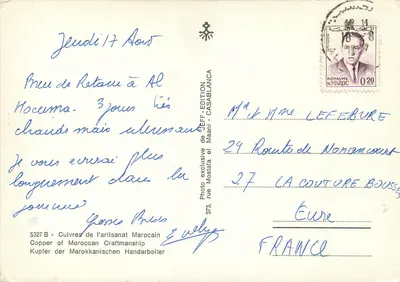 Jeudi 17 Août
Bien de Retour à Al
Hoceima. 3 jours très
chauds mais intéressants
Je vous écrirai plus
longuement dans la
journée
Grosses Bises
Evelyne
5327 B - Cuivres de l'artisanat Marocain
Copper of Moroccan Craftmanship
Kupfer der Marokkanischen Handarbeiter
Photo exclusive de JEFF-EDITION
373, rue Mostafa el Maani - CASABLANCA
ROYAUME
0,20
Mr & Mme LEFEBURE
29 Route de Nonancourt
27 LA COUTURE BOUSSEY
Eure
FRANCE